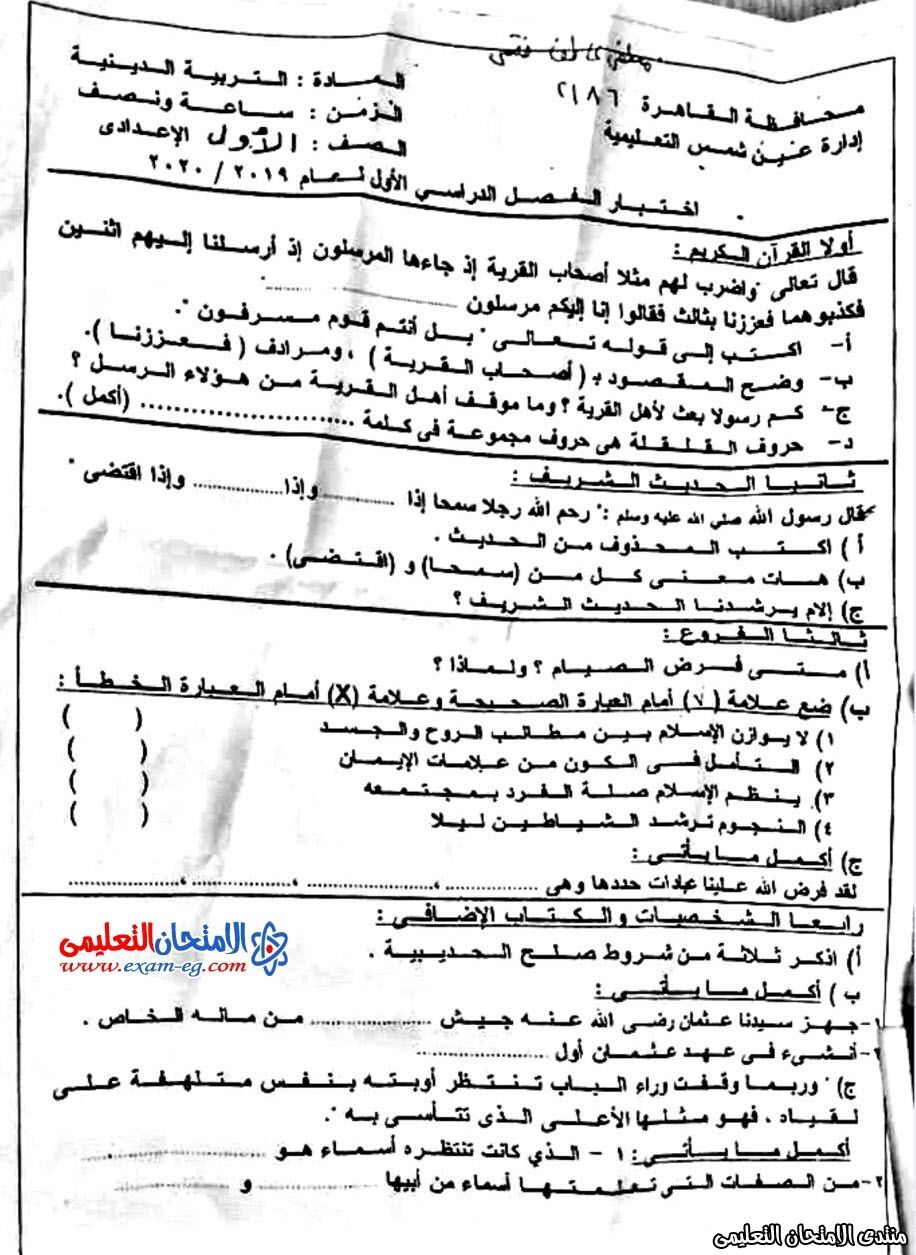 محافظة القاهرة ٢١٨٦
إدارة عين شمس التعليمية
المادة : التربية الدينية
الزمن : ساعة ونصف
الصف : الأول الإعدادى
اختبار الفصل الدراسي الأول لعام ٢٠١٩ / ٢٠٢٠
أولا القرآن الكريم :
قال تعالى "واضرب لهم مثلا أصحاب القرية إذ جاءها المرسلون إذ أرسلنا إليهم اثنين
فكذبوهما فعززنا بثالث فقالوا إنا إليكم مرسلون ....................
أ- اكتب إلى قوله تعالى " بل أنتم قوم مسرفون ".
ب- وضح المقصود بـ ( أصحاب القرية ) ، ومرادف ( فعززنا ).
ج- كم رسولا بعث لأهل القرية ؟ وما موقف أهل القرية من هؤلاء الرسل ؟
د- حروف القلقلة هى حروف مجموعة فى كلمة .................... (أكمل ).
ثانيا الحديث الشريف :
قال رسول الله صلي الله عليه وسلم :" رحم الله رجلا سمحا إذا ............وإذا................ وإذا اقتضى "
أ ) اكتب المحذوف من الحديث .
ب) هات معنى كل من (سمحا) و (اقتضى) .
ج) إلام يرشدنا الحديث الشريف ؟
ثالثا الفروع :
أ) متى فرض الصيام ؟ ولماذا ؟
ب) ضع علامة (√) أمام العبارة الصحيحة وعلامة (X) أمام العبارة الخطأ :
١) لا يوازن الإسلام بين مطالب الروح والجسد ( )
٢) التأمل فى الكون من علامات الإيمان ( )
٣) ينظم الإسلام صلة الفرد بمجتمعه ( )
٤) النجوم ترشد الشياطين ليلا ( )
ج) أكمل ما يأتى :
لقد فرض الله علينا عبادات حددها وهى ................، ..................، ................، ..................
رابعا الشخصيات والكتاب الإضافى :
أ) اذكر ثلاثة من شروط صلح الحديبية .
ب ) أكمل ما يأتى :
١-جهز سيدنا عثمان رضى الله عنه جيش .................. من ماله الخاص .
٢-أنشىء فى عهد عثمان أول ....................
ج) " وربما وقفت وراء الباب تنتظر أوبته بنفس متلهفة على
لقياه ، فهو مثلها الأعلى الذى تتأسى به ".
أكمل ما يأتى : ١ - الذي كانت تنتظره أسماء هو ......................
٢-من الصفات التى تعلمتها أسماء من أبيها .................. و ..................
الامتحان التعليمى
www.exam-eg.com
منتدى الامتحان التعليمى